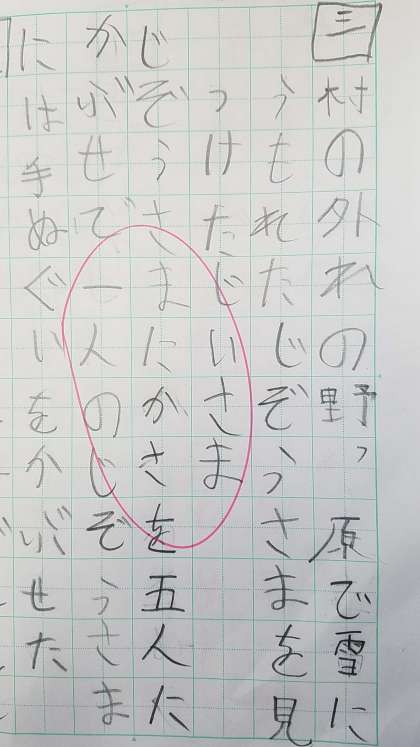 三
村の外れの野っ原で雪に
うもれたじぞうさまを見
つけたじいさま
じぞうさまたかさを五人た
かぶせで一人のじぞうさま
には手ぬぐいをかぶせた